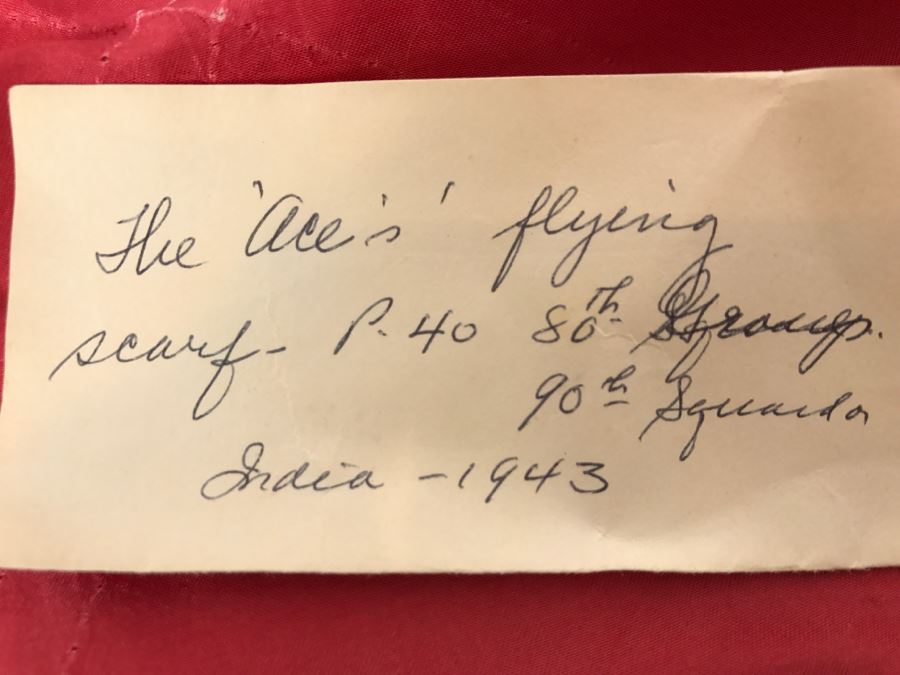 The 'Ace's' flying
scarf- P-40 80th Group.
90th Squardo
India - 1943